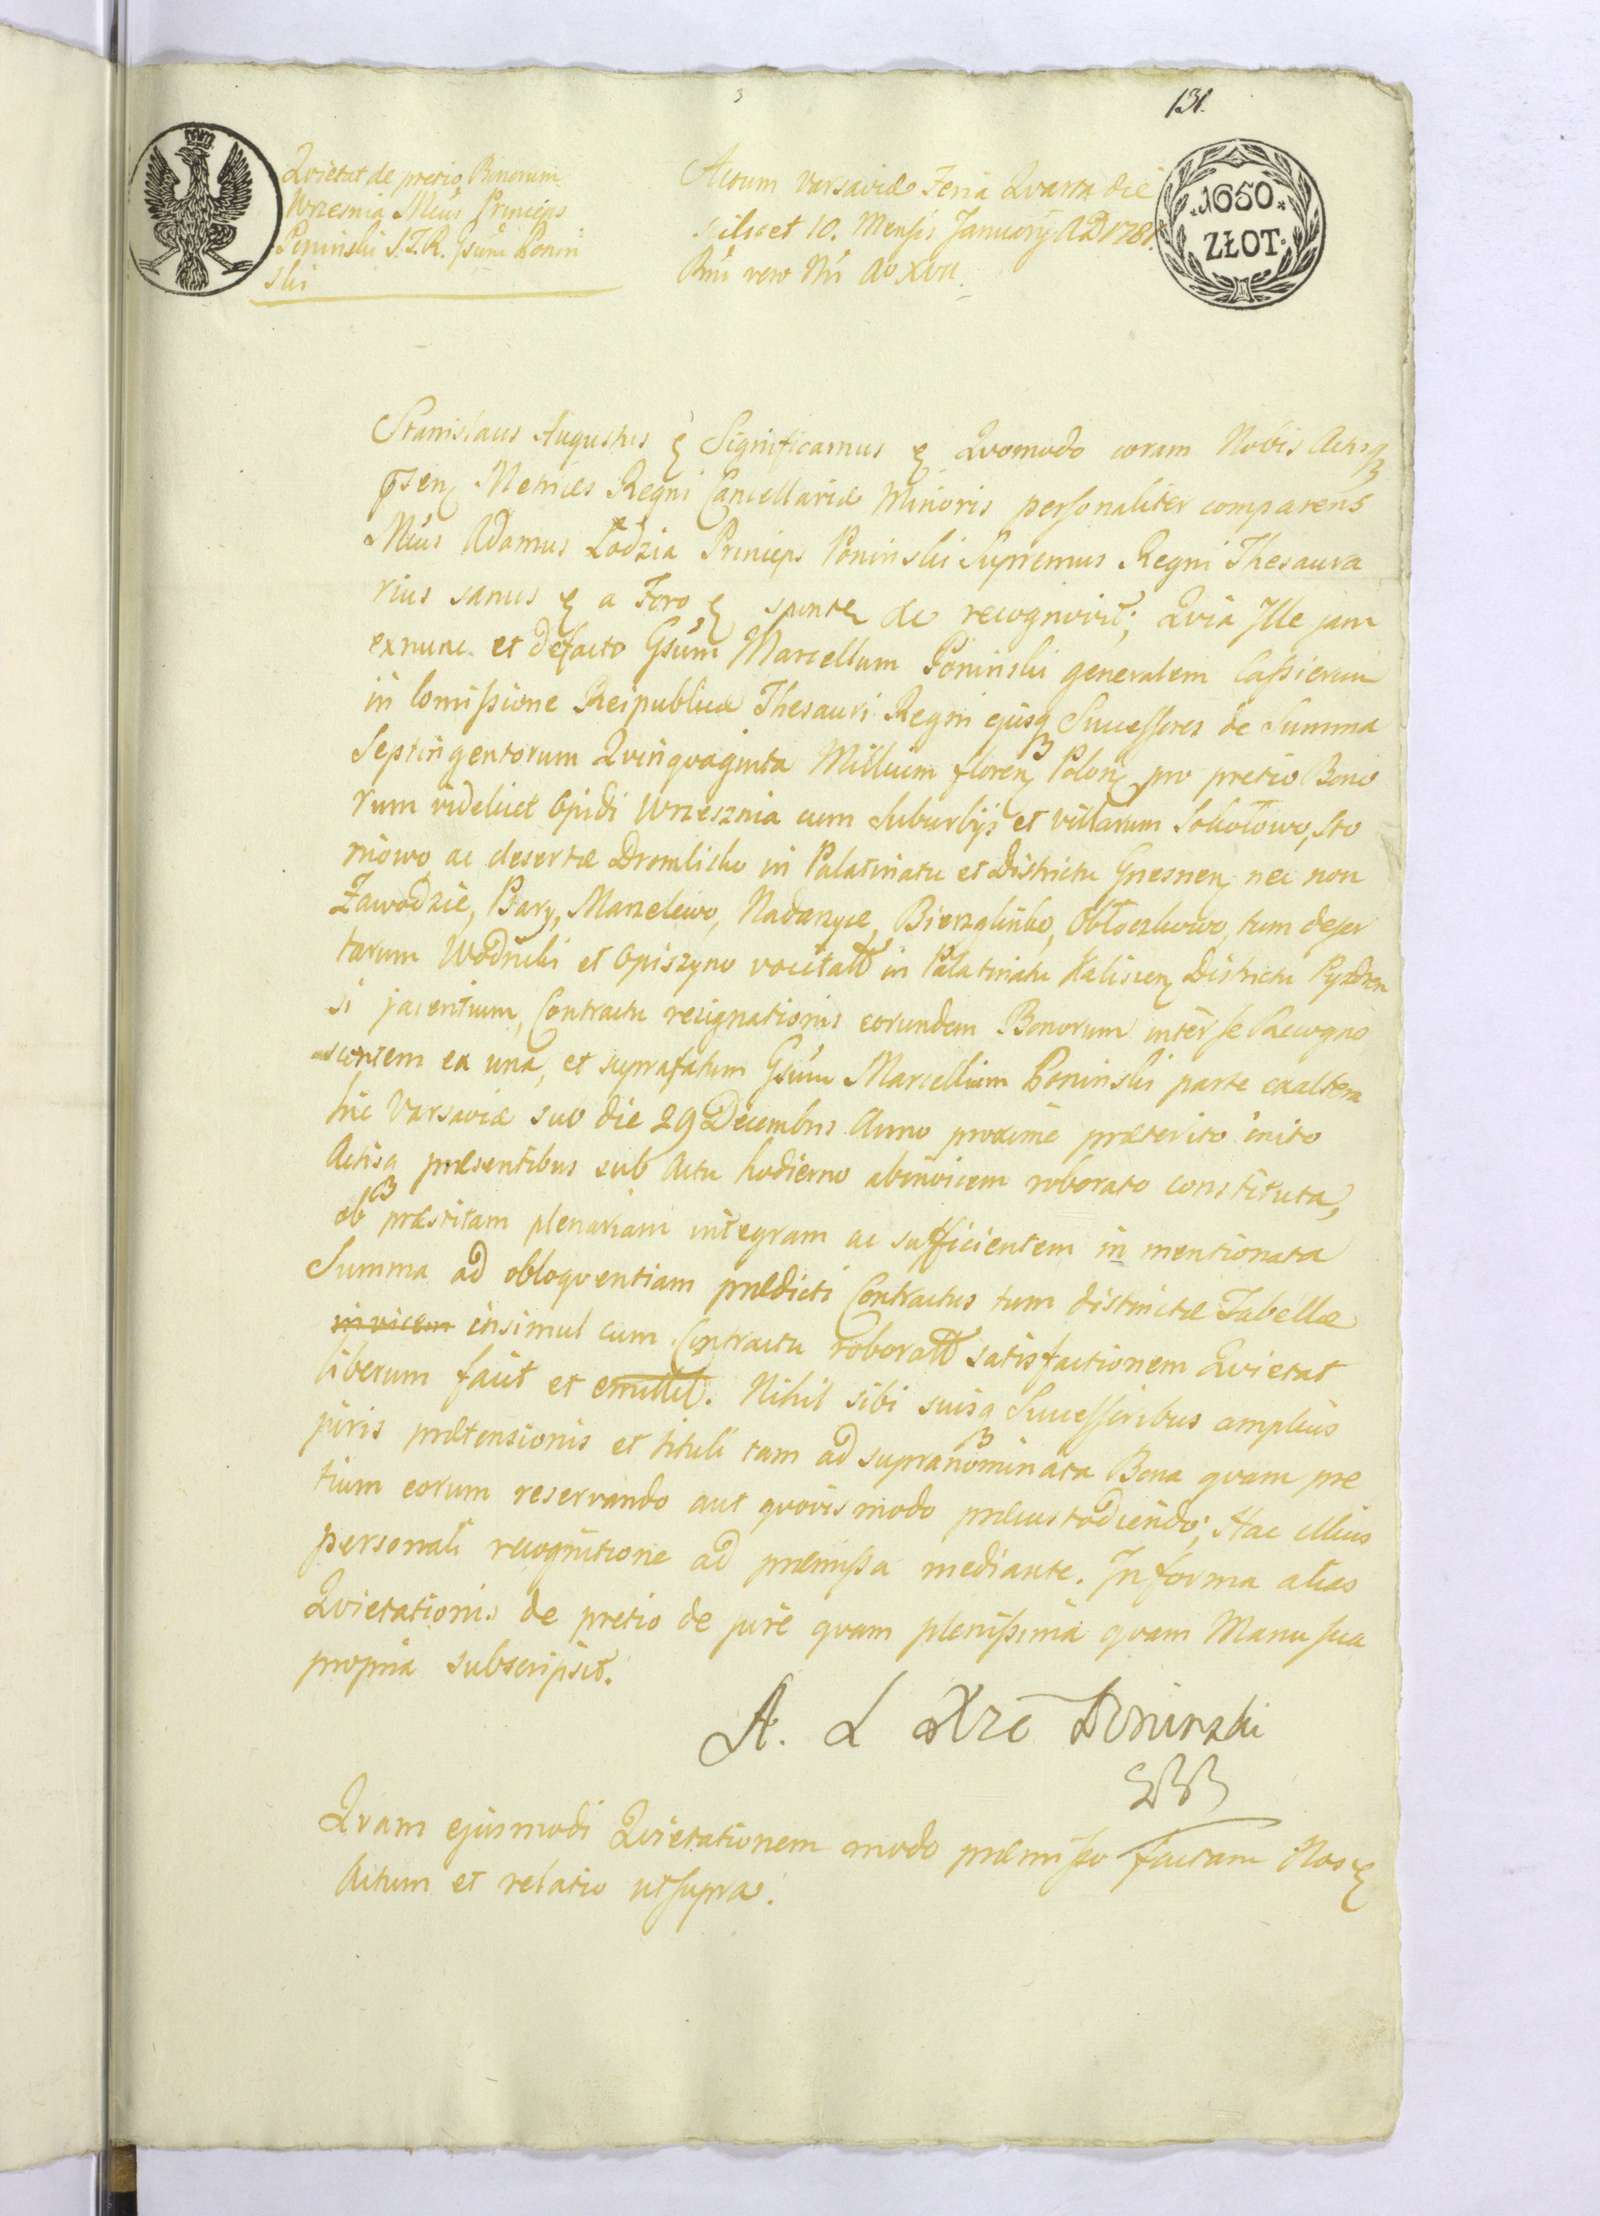 131.
Qvietat de pretio Bonorum
Wrzesnia Mcus Princeps
Poninski S.T.R. Gsum Ponin
ski
Actum Varsaviæ Feria Qvarta die
scilicet 10. Mensis January AD 1781.
Rni vero Nri Ao XVII.
1650
ZŁOT.
Stanislaus Augustus Significamus Qvomodo coram Nobis Actisq
psen Metrices Regni Cancellariæ Minoris personaliter comparens
Mcus Adamus Lodzia Princeps Poninski Supremus Regni Thesaura
rius sanus a Foro sponte ac recognovit; Qvia Jlle jam
exnunc et defacto Gsum Marcellum Poninski generalem Cassierum
in Comissione Reipublicæ Thesauri Regni ejusq Successores de Summa
Septingentorum Qvinqvaginta Millium floren Polon pro pretio Bono
rum videlicet Opidi Wrzesznia cum Suburbijs et villarum Sokołowo, Sto
mowo ac desertæ Dromlisko in Palatinatu et Districtu Gnesnen nec non
Zawodzie, Bary, Marzelewo, Nadarzyce, Bierzglinko, Obłoczkowo, tum deser
tarum Wodniki et Opiszyno vocitatt in Palatinatu Kaliscen Districtu Pyzdren
si jacentium, Contractu resignationis eorundem Bonorum inter se Recogno
scentem ex una, et suprafatum Gsum Marcellium Poninski parte exaltera
hic Varsaviæ sub die 29 Decembris Anno proxime præterito inito
Actisq præsentibus sub Actu hodierno abinvicem roborato constituta,
ob præstitam plenariam integram ac sufficientem in mentionata
Summa ad obloqventiam prædicti Contractus tum distinctæ Tabellæ
invicem insimul cum Contractu roboratt satisfactionem Qvietat
liberum facit et emittit. Nihil sibi suisq Successoribus amplius
juris prætensionis et tituli tam ad supranominata Bona qvam pre
tium eorum reservando aut qvovis modo præcustodiendo; Hac illius
personali recognitione ad præmissa mediante. In forma alias
Qvietationis de pretio de jure qvam plenissima qvam Manu sua
propria subscripsit.
A. L Xze Poninski
Qvam ejusmodi Qvietationem modo præmisso factam Nos
Actum et relatio utsupra.